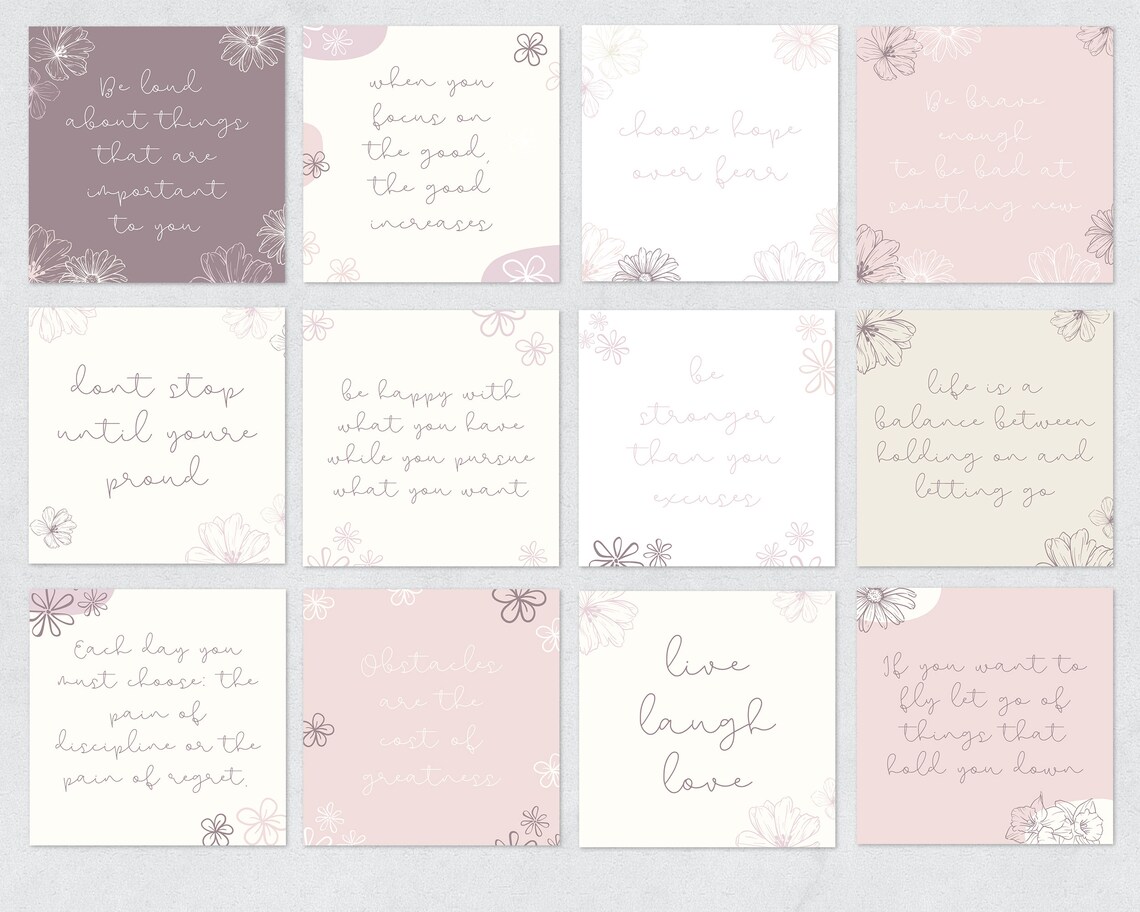 Be loud
about things
that are
important
to you
when you
focus on
the good,
the good
increases
choose hope
over fear
Be brave
enough
to be bad at
something new
dont stop
until youre
proud
be happy with
what you have
while you pursue
what you want
be
stronger
than you
excuses
life is a
balance between
holding on and
letting go
Each day you
must choose: the
pain of
discipline or the
pain of regret.
Obstacles
are the
cost of
greatness
live
laugh
love
If you want to
fly let go of
things that
hold you down